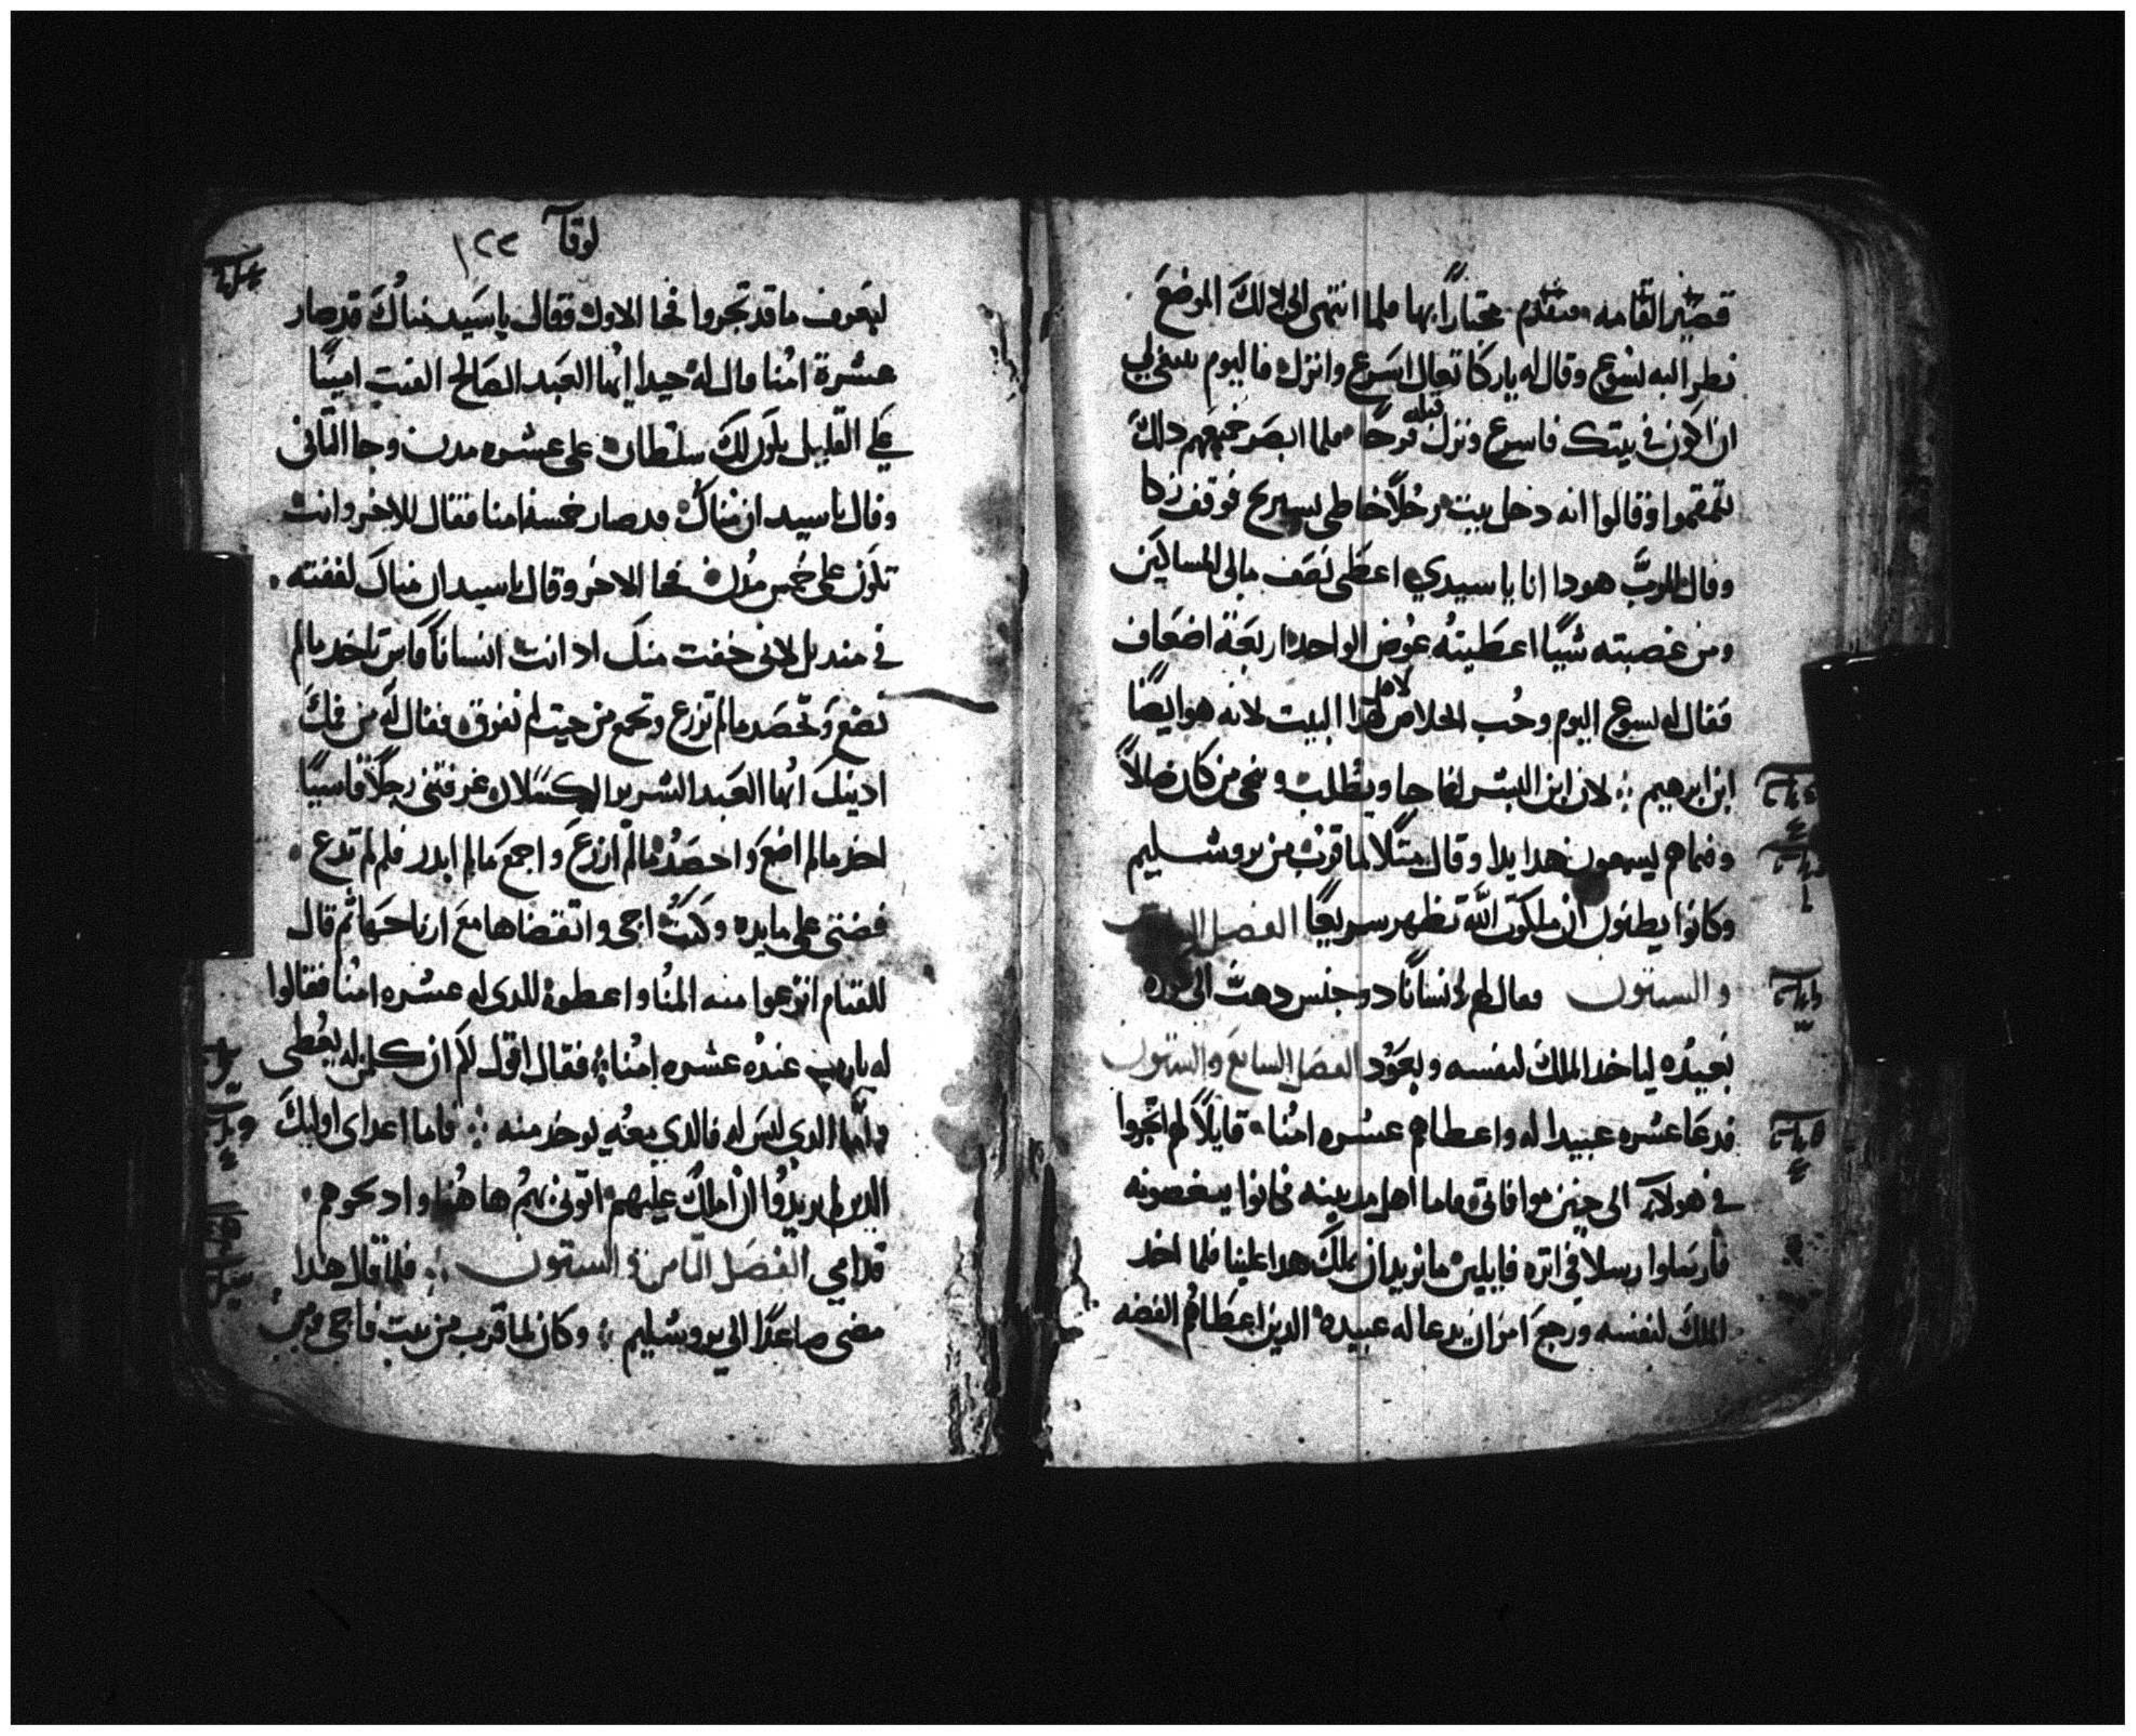 قصير القامه فتقدم مجتازًا بها فلما انتهى الى دلك الموضع
نظر اليه يسوع وقال له يازكا تعال اسرع وانزل فاليوم ينبغي لي
ان اكون في بيتك فاسرع ونزل قبله فرحًا فلما ابصر جميعهم دلك
تقمقموا وقالوا انه دخل بيت رجلاً خاطى يستريح فوقف زكا
وقال للرب هودا انا يا سيدي اعطى نصف مالى للمساكين
ومن غصبته شيًا اعطيته عوض الواحد اربعة اضعاف
فقال له يسوع اليوم وجب الخلاص لاهل هدا البيت لانه هو ايضًا
ابن ابرهيم لان ابن البشر انما جا ويطلب وينجى من كان ضالاً
وفيما هم يسمعون هدا بدا وقال متلاً لما قرب من يروشليم
وكانوا يظنون ان ملكوت الله تظهر سريعًا الفصل
والستون فقال لهم لانسانًا دو جنس دهب الى كوره
بعيده لياخد الملك لنفسه ويعود الفصل السابع والستون
فدعا عشره عبيدا له واعطاهم عشره امنا قايلاً لهم اتجروا
في هولاء الى حين موافاتى فاما اهل مدينه فكانوا يبغضونه
فارسلوا رسلاً في اتره قايلين ما نريد ان يملك هدا علينا فلما اخد
الملك لنفسه ورجع امر ان يدعا له عبيده الدين اعطاهم الفضه
لوقا ١٢٣
ليعرف ما قد تجروا فجا الاول فقال يا سيد مناك قد صار
عشرة امنا قال له جيدا ايها العبد الصالح الفيت امينًا
على القليل يكون لك سلطان على عشره مدن وجا التانى
وقال يا سيد ان مناك قد صار خمسة امنا فقال للاخر وانت
تكون على خمس مدن فجا الاخر وقال يا سيد ان مناك لففته
في منديل لانى خفت منك اد انت انسانًا قاس تاخد ما لم
تضع وتحصد ما لم تزرع وتجمع من حيت لم تفرق فقال له من فمك
ادينك ايها العبد الشرير الكسلان عرفتنى رجلاً قاسيًا
اخد ما لم اضع واحصد ما لم ازرع واجمع ما لم ابدر فلم لم تدع
فضتى على مايده وكنت اجى واتقضاها مع ارباحها تم قال
للقيام انزعوا منه المنا واعطوه للدى له عشره امنا فقالوا
له يارب عنده عشره امنا فقال اقول لكم ان كل من له يعطى
واما الدي ليس له فالدي معه يوخد منه فاما اعداى اوليك
الدين لم يريدوا ان املك عليهم اتونى بهم ها هنا وادبحوهم
قدامي الفصل التامن والستون فلما قال هدا
مضى صاعدًا الى يروشليم وكان لما قرب من بيت فاجى